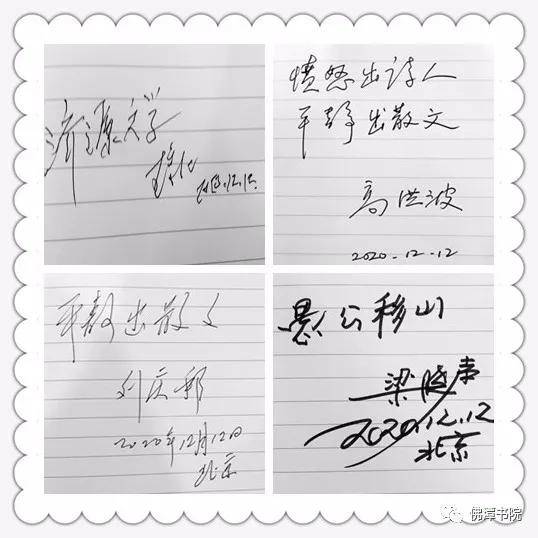 济源文学
2020.12.12
愤怒出诗人
平静出散文
高洪波
2020.12.12
平静出散文
刘庆邦
2020年12月12日
北京
愚公移山
梁晓声
2020.12.12
北京
佛潭书院